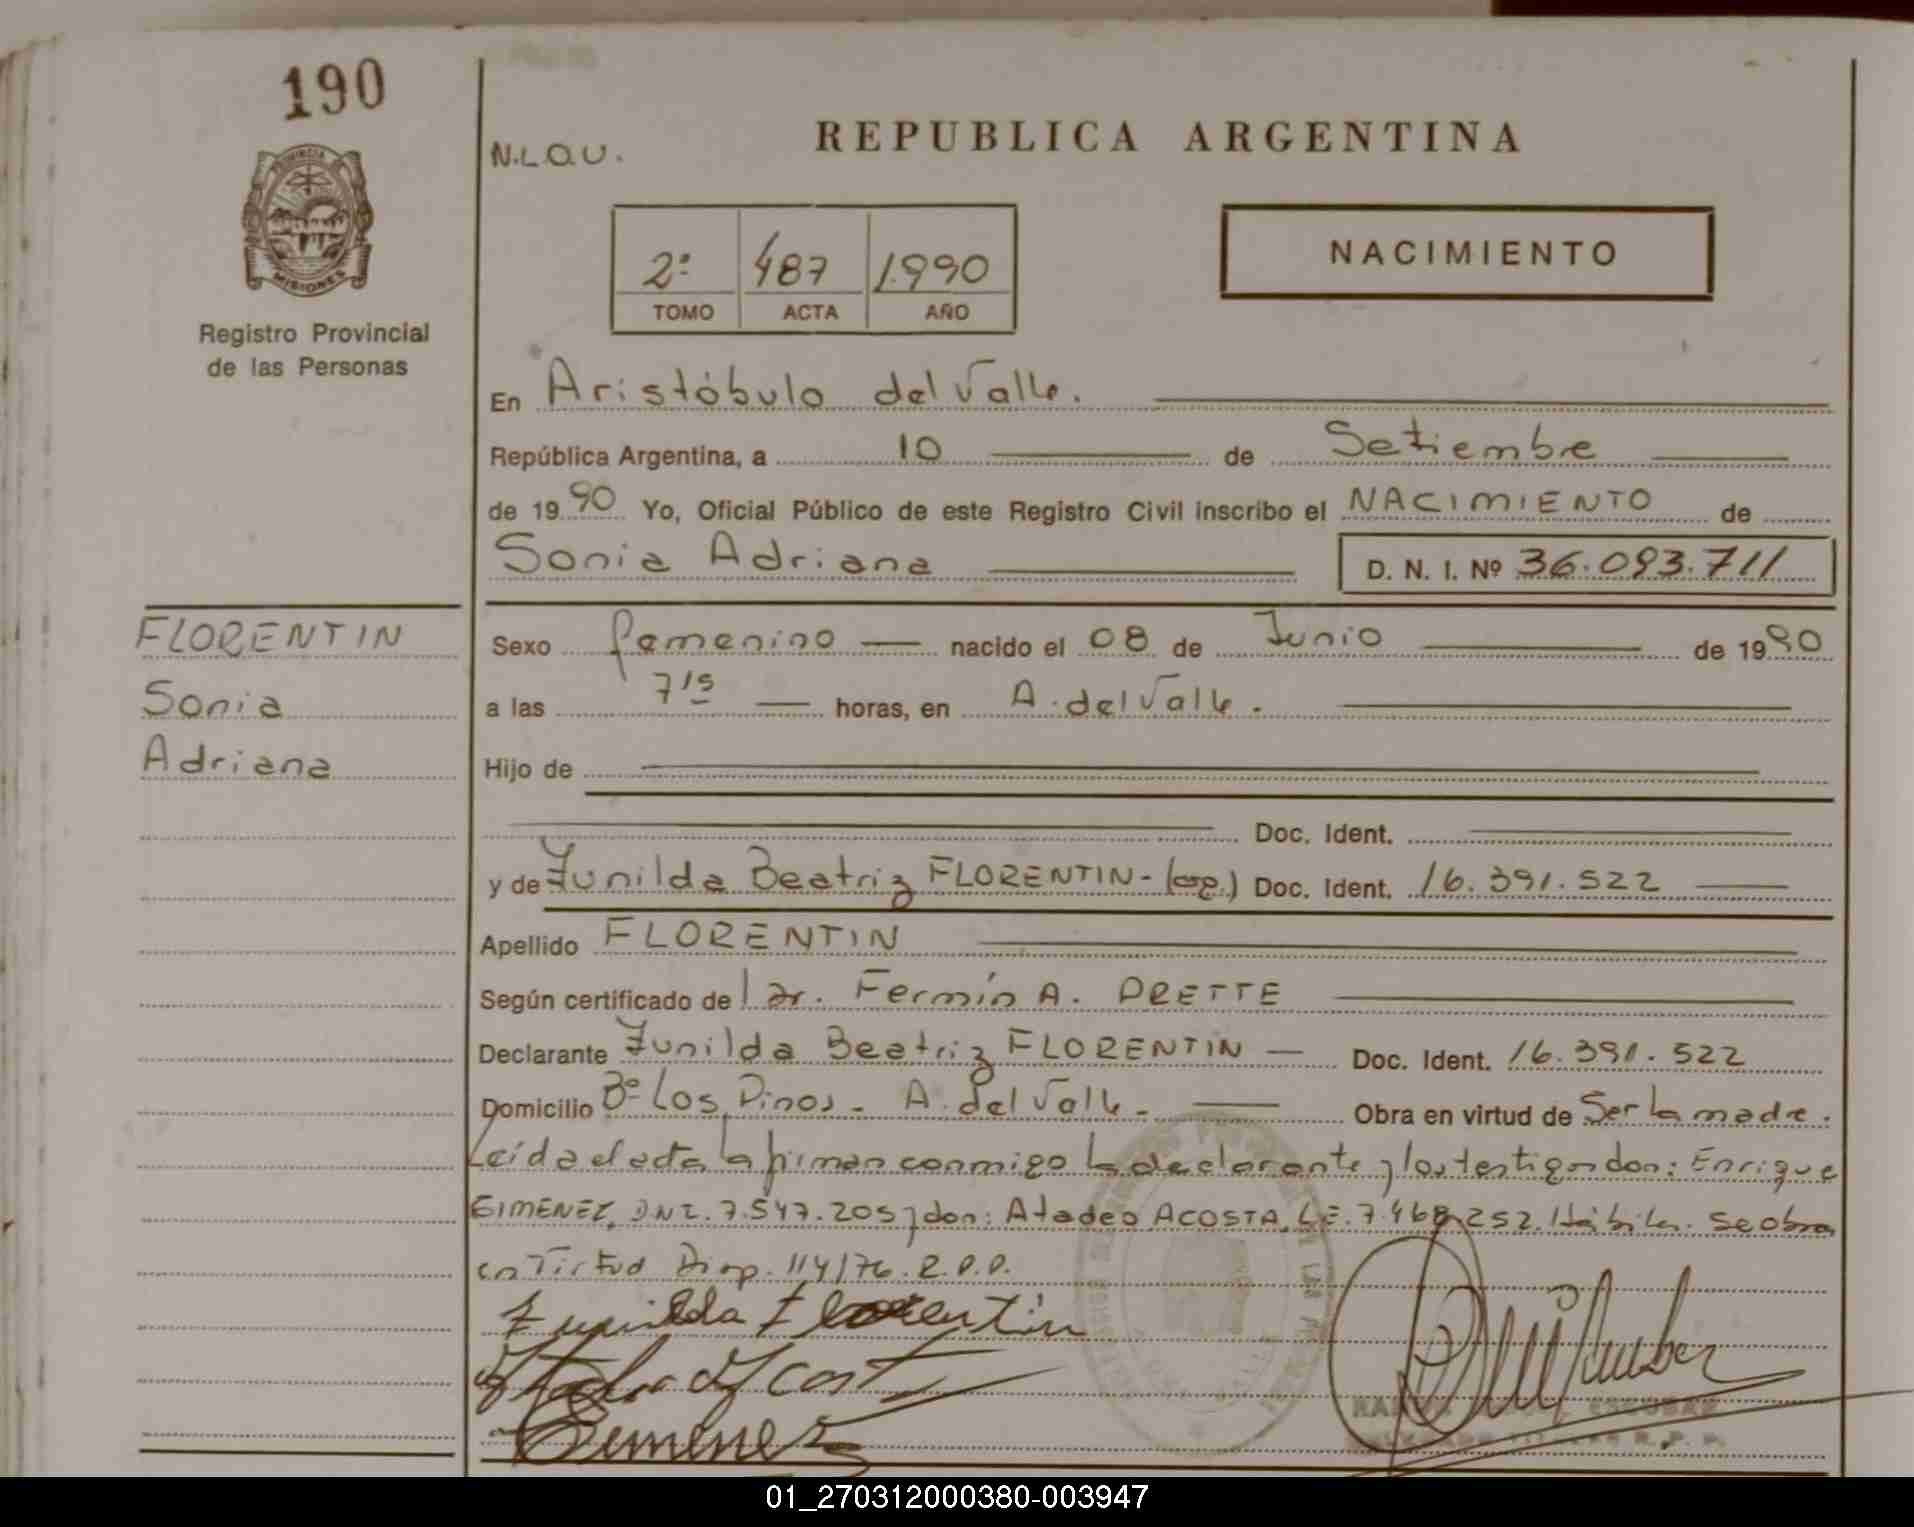 190
N.L.O.U.
REPUBLICA ARGENTINA
PROVINCIA
MISIONES
Registro Provincial
de las Personas
2º 487 1.990
TOMO ACTA AÑO
NACIMIENTO
En Aristóbulo del Valle.
República Argentina, a 10 de Setiembre
de 1990 Yo, Oficial Público de este Registro Civil inscribo el NACIMIENTO de
Sonia Adriana D. N. I. Nº 36.093.711
FLORENTIN
Sonia
Adriana
Sexo femenino nacido el 08 de Junio de 1990
a las 7,15 horas, en A. del Valle.
Hijo de
Doc. Ident.
y de Zunilda Beatriz FLORENTIN - (arg.) Doc. Ident. 16.391.522
Apellido FLORENTIN
Según certificado de Dr. Fermín A. PRETTE
Declarante Zunilda Beatriz FLORENTIN Doc. Ident. 16.391.522
Domicilio Bº Los Pinos - A. del Valle - Obra en virtud de Ser la madre.
Leída el acta la firman conmigo la declarante y los testigos don: Enrique
GIMENEZ, DNI. 7.547.205 y don: Atadeo ACOSTA, LE. 7.468.252. Hábiles. Se obra
en Virtud Disp. 114/76. R.P.P.
Zunilda Florentin
Gimenez
01_270312000380-003947